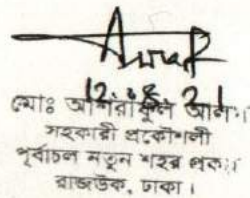 12.08.21
মোঃ আশরাফুল আলম
সহকারী প্রকৌশলী
পূর্বাচল নতুন শহর প্রকল্প
রাজউক, ঢাকা।